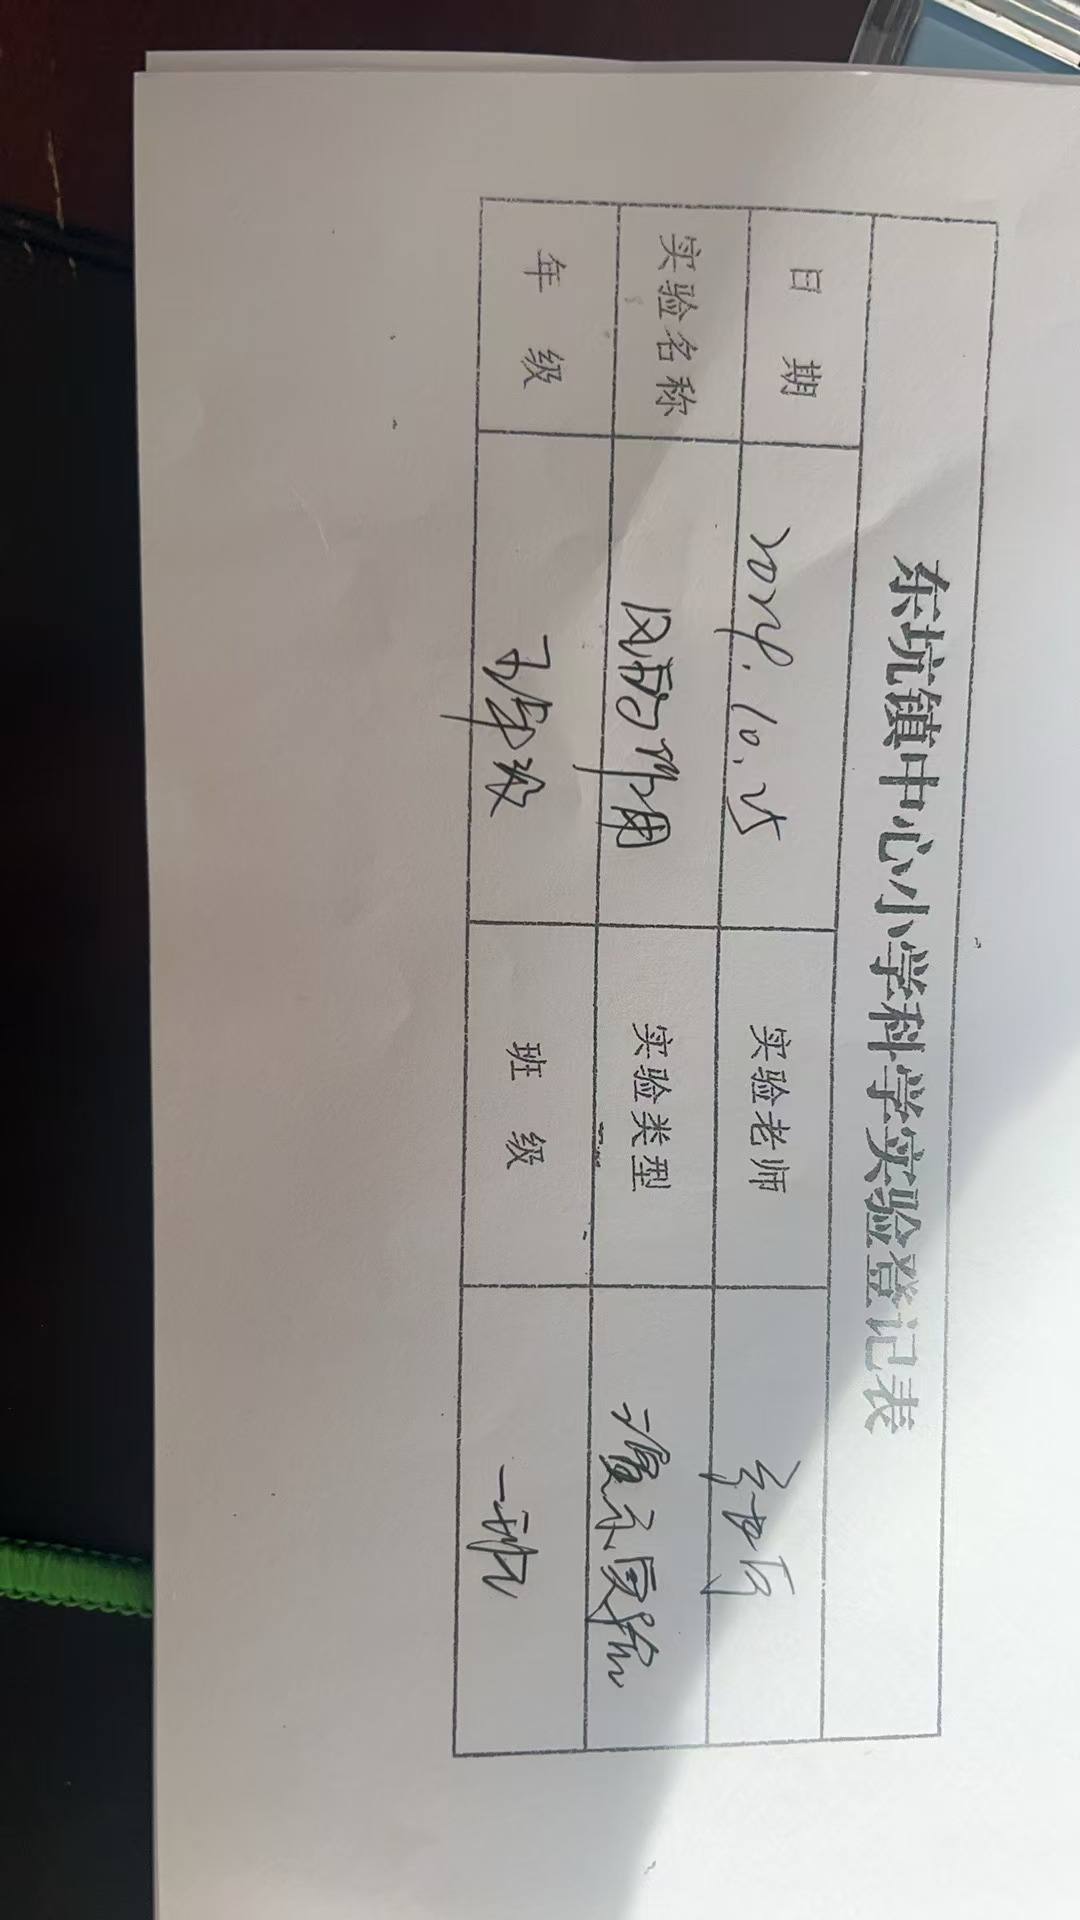 东坑镇中心小学科学实验登记表
日 期 2024.10.25 实验老师
实验名称 风的作用 实验类型 演示实验
年 级 五年级 班 级 一班